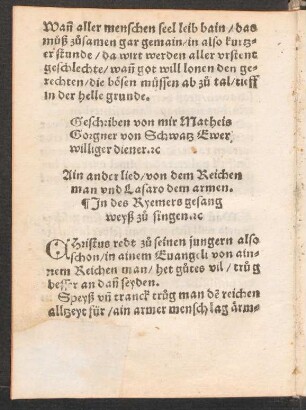 Wañ aller menschen seel leib bain / das
můß zůsamen gar gemain / in also kurtz-
er stunde / da wirt werden aller vrstent
geschlechte / wañ got will lonen den ge-
rechten / die bösen müssen ab zů tal / tieff
in der helle grunde.
Geschriben von mir Matheis
Gorgner von Schwatz Ewer
williger diener.ꝛc
Ain ander lied / von dem Reichen
man vnd Lasaro dem armen.
¶ In des Ryemers gesang
weyß zů singen.ꝛc
CHristus redt zů seinen jungern also
schon / in ainem Euangeli von ai-
nem Reichen man / het gůtes vil / trůg
besser an dañ seyden.
Speyß vñ tranck trůg man dē reichen
alltzeyt für / ain armer mensch lag ärm-